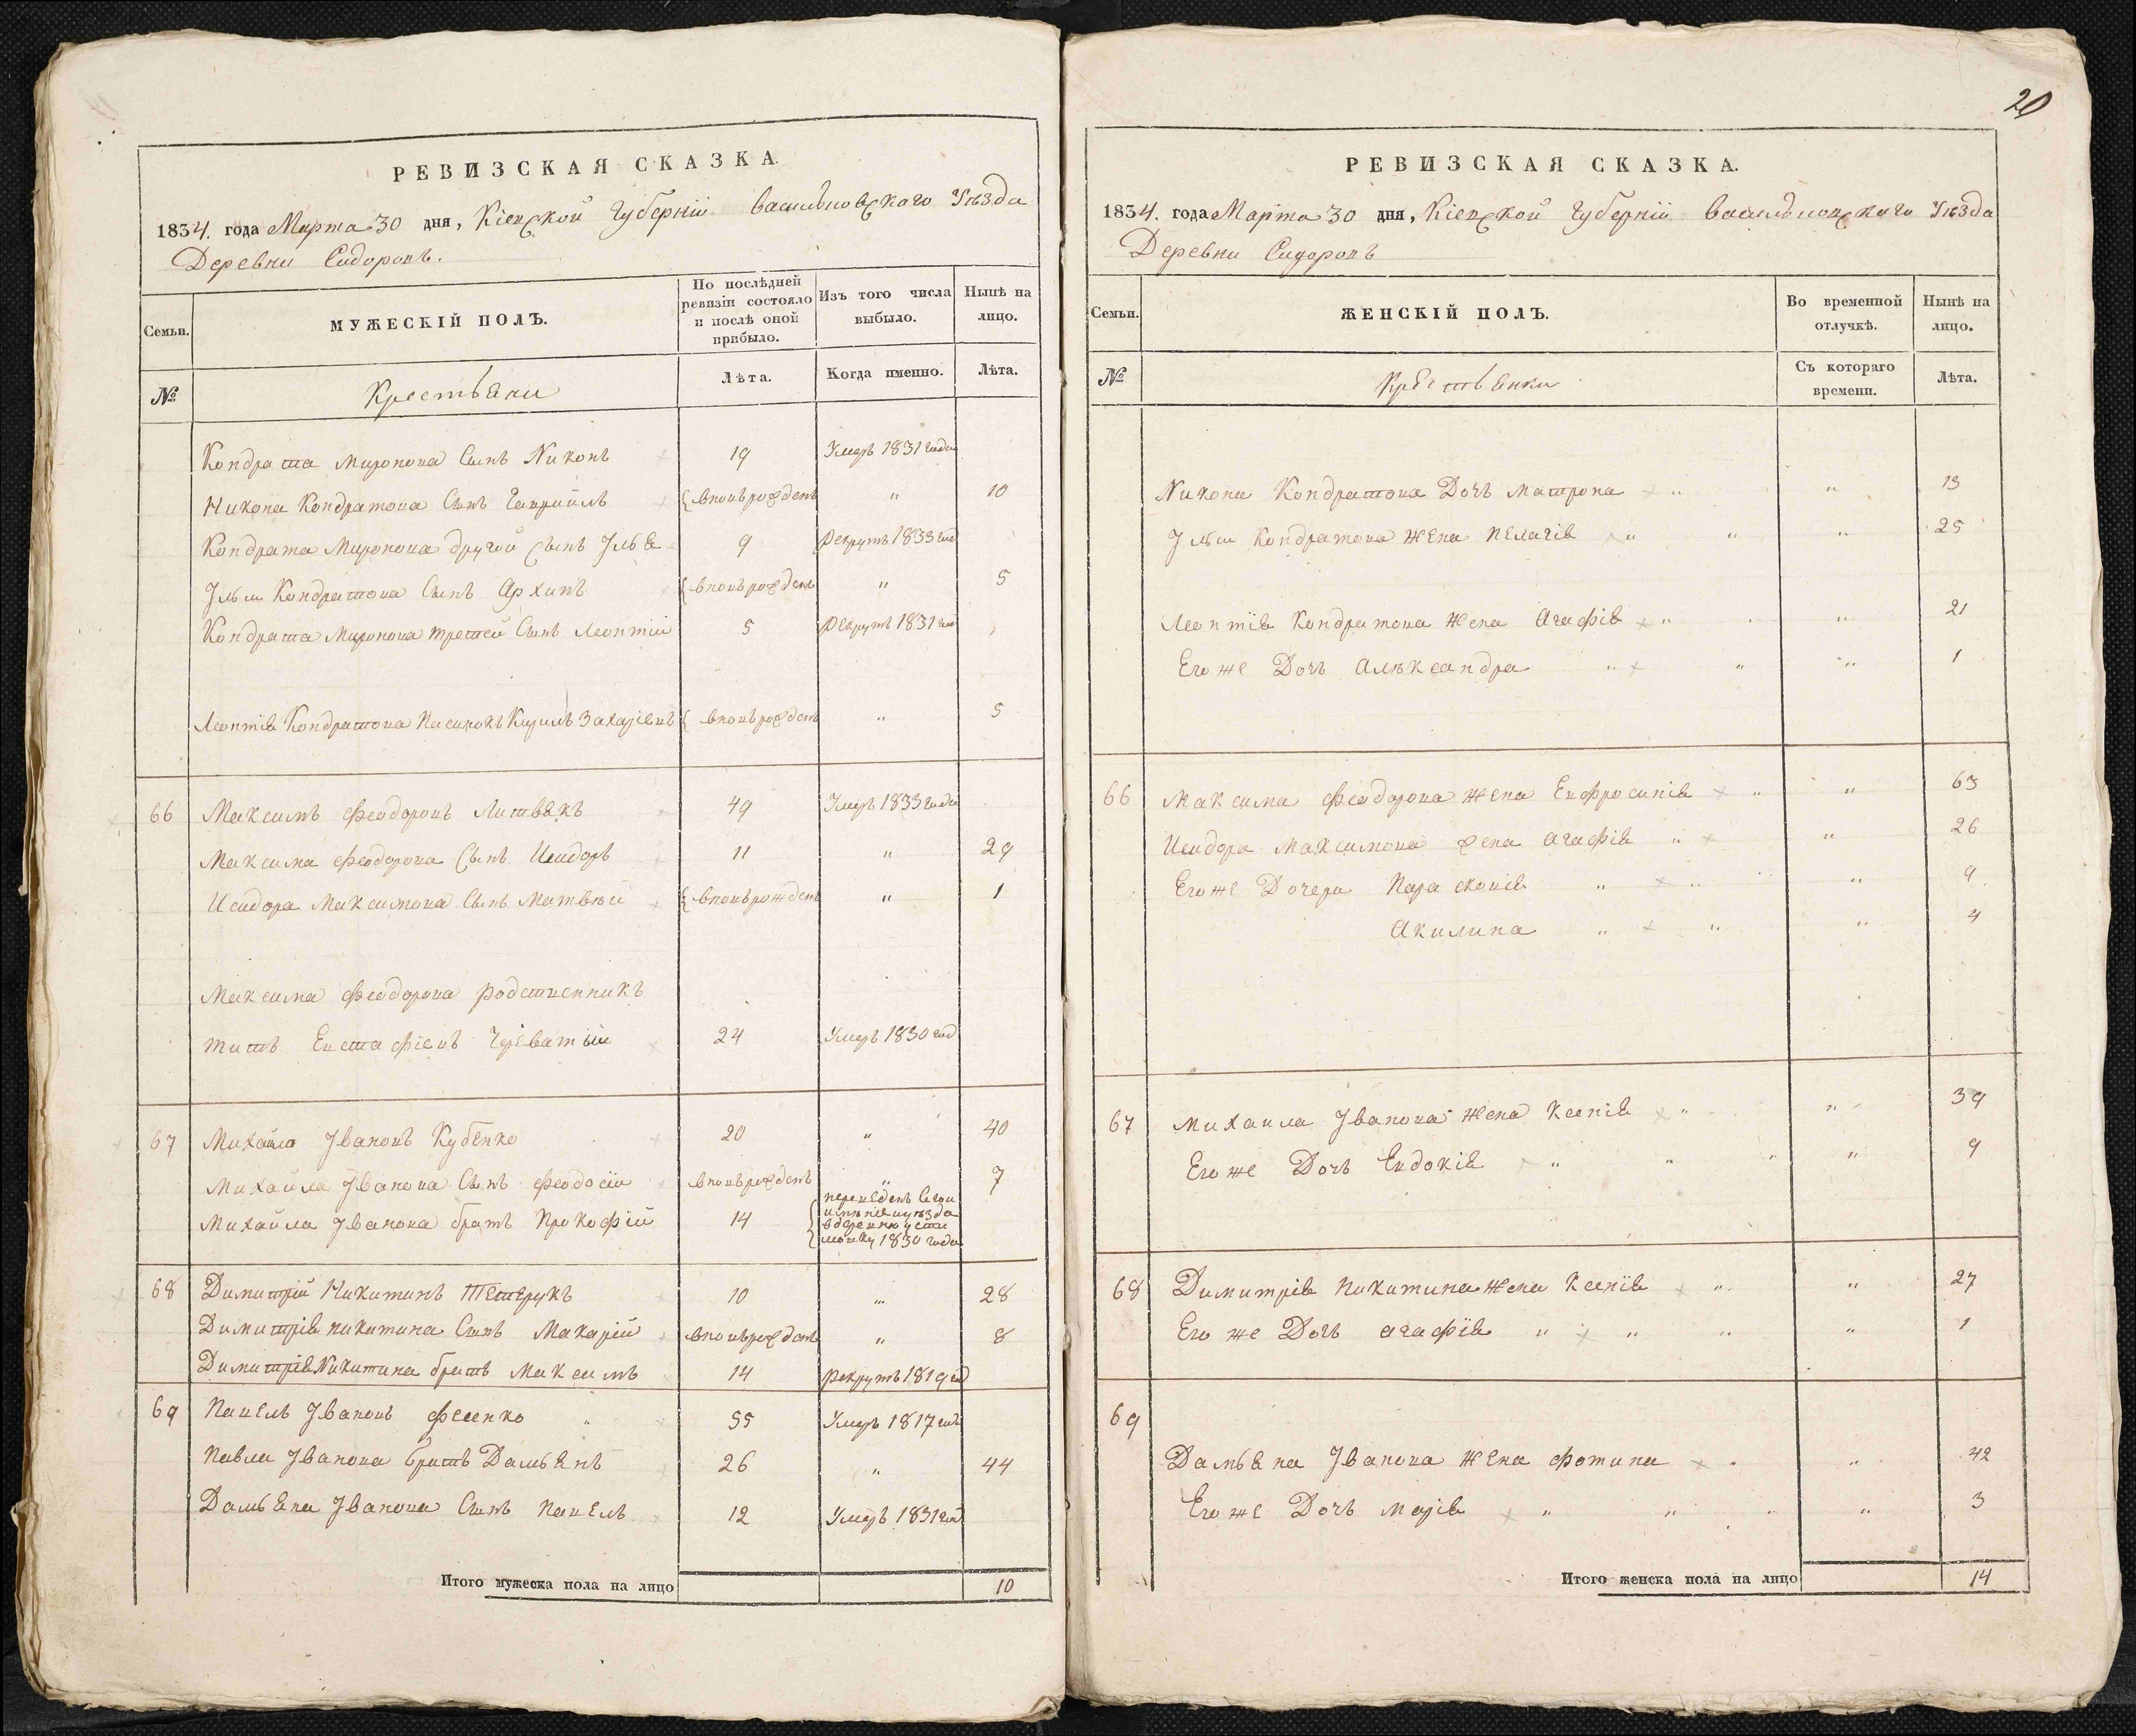 РЕВИЗСКАЯ СКАЗКА.
1834. года Марта 30 дня, Кіевской Губерніи Васильковскаго Уѣзда
Деревни Сидоровъ.
Семьи.
МУЖЕСКІЙ ПОЛЪ.
По послѣдней ревизіи состояло и послѣ оной прибыло.
Изъ того числа выбыло.
Нынѣ на лицо.
№
Крестьяни
Лѣта.
Когда именно.
Лѣта.
Кондрата Миронова Сынъ Никонъ 19 Умеръ 1831 года
Никона Кондратова Сынъ Гавриилъ вновьрожденъ " 10
Кондрата Миронова другой Сынъ Илья 9 Рекрутъ 1833 год
Ильи Кондратова Сынъ Архипъ вновьрожденъ " 5
Кондрата Миронова третей Сынъ Леонтій 5 Рекрутъ 1831 год
Леонтія Кондратова Пасинокъ Кирилъ Захаріевъ вновьрожденъ " 5
66 Максимъ Феодоровъ Литвякъ 49 Умеръ 1833 года
Максима Феодорова Сынъ Исидоръ 11 " 29
Исидора Максимова Сынъ Матвѣй вновьрожденъ " 1
Максима Феодорова родственникъ
Титъ Евстафіевъ Чреватый 24 Умеръ 1830 год
67 Михайло Ивановъ Кубенко 20 " 40
Михайла Иванова Сынъ Феодосій вновьрожденъ " 7
Михайла Иванова братъ Прокофій 14 переведенъ Сего
имѣнія и уѣзда
в деревню
1830 года
68 Димитрій Никитинъ Тетерукъ 10 " 28
Димитрія Никитина Сынъ Макарій вновьрожденъ " 8
Димитрія Никитина братъ Максимъ 14 рекрутъ 1819 год
69 Павелъ Ивановъ Фесенко 55 Умеръ 1817 год
Павла Иванова братъ Дамьянъ 26 " 44
Дамьяна Иванова Сынъ Павелъ 12 Умеръ 1831 год
Итого мужеска пола на лицо 10
20
РЕВИЗСКАЯ СКАЗКА.
1834. года Марта 30 дня, Кіевской Губерніи Васильковскаго Уѣзда
Деревни Сидоровъ
Семьи.
ЖЕНСКІЙ ПОЛЪ.
Во временной отлучкѣ.
Нынѣ на лицо.
№
Крестьянки
Съ котораго времени.
Лѣта.
Никона Кондратова Дочь Матрона " " 13
Ильи Кондратова Жена Пелагія " " " 25
Леонтія Кондратова Жена Агафія " " 21
Его же Дочь Алѣксандра " " " 1
66 Максима Феодорова Жена Евфросинія " " 63
Исидора Максимова Жена Агафія " " 26
Его же Дочери Парасковія " " " 9
Акилина " " " 4
67 Михаила Иванова Жена Ксенія " " 39
Его же Дочь Евдокія " " " " 9
68 Димитрія Никитина Жена Ксенія " " 27
Его же Дочь Агафія " " " " 1
69
Дамьяна Иванова Жена Фотина " " 42
Его же Дочь Марія " " " " 3
Итого женска пола на лицо 14